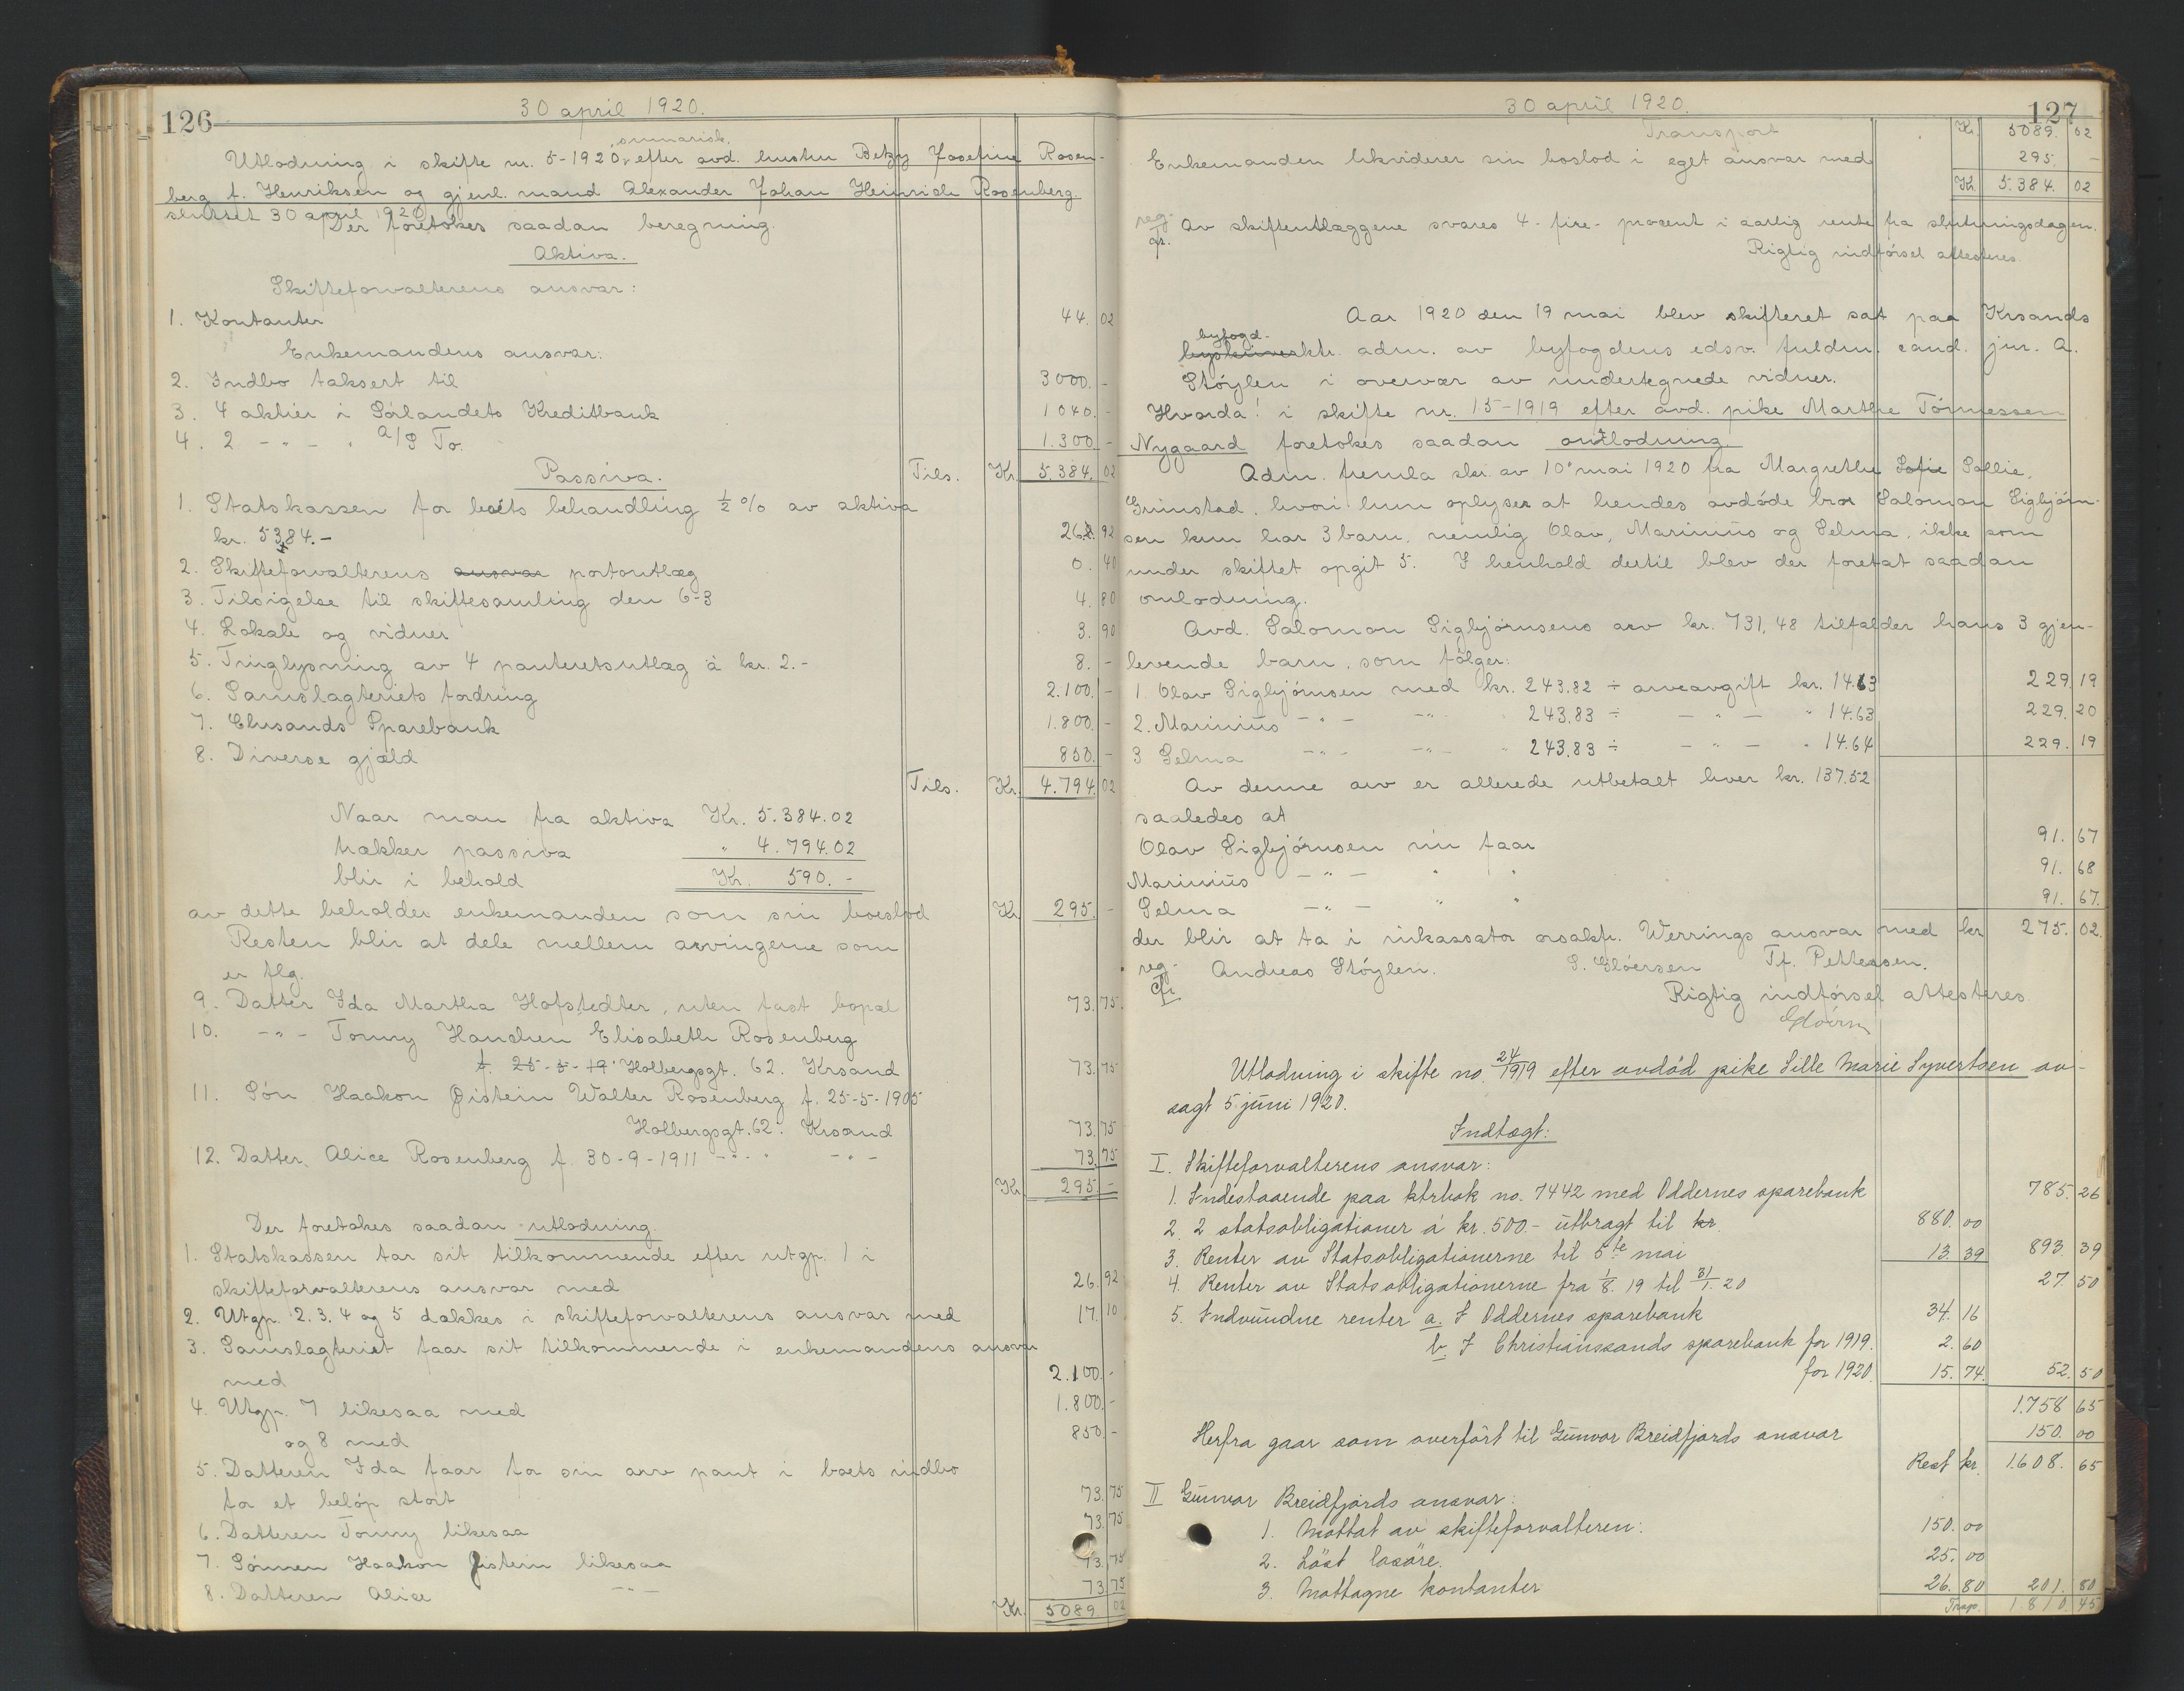 126
30 april 1920.
summarisk
Utlodning i skifte nr. 5-1920, efter avd. hustru Betzy Josefine Rosen-
berg f. Henriksen og gjenl. mand Alexander Johan Heinrich Rosenberg
sluttet 30 april 1920
Der foretokes saadan beregning.
Aktiva.
Skifteforvalterens ansvar:
1. Kontanter 44. 02
Enkemandens ansvar:
2. Indbo taksert til 3000. -
3. 4 aktier i Sørlandets Kreditbank 1040. -
4. 2 - " - " A/S To. 1.300 -
Tils. Kr. 5.384. 02
Passiva.
1. Statskassen for boets behandling ½ % av aktiva
kr. 5384.- 26. 92
2. Skifteforvalterens ansvar portoutlæg 0. 40
3. Tilsigelse til skiftesamling den 6-3 4. 80
4. Lokale og vidner 3. 90
5. Tinglysning av 4 panteretsutlæg à kr. 2.- 8. -
6. Samslagteriets fordring 2.100. -
7. Chrsands Sparebank 1.800. -
8. Diverse gjæld 850. -
Tils. Kr. 4.794. 02
Naar man fra aktiva Kr. 5.384.02
trækker passiva " 4.794.02
blir i behold Kr. 590.-
av dette beholder enkemanden som sin boeslod Kr 295. -
Resten blir at dele mellem arvingerne som
er flg.
9. Datter Ida Martha Hofstedter, uten fast bopæl 73. 75.
10. - " - Tonny Hanchen Elisabeth Rosenberg
f. 25-5-19 Holbergsgt. 62. Krsand 73. 75
11. Søn Haakon Øistein Walter Rosenberg f. 25-5-1905
Holbergsgt. 62. Krsand 73. 75
12. Datter Alice Rosenberg f. 30-9-1911 - " - " - " - 73. 75
Kr 295 -
Der foretokes saadan utlodning.
1. Statskassen tar sit tilkommende efter utgp. 1 i
skifteforvalterens ansvar med 26. 92
2. Utgp. 2. 3. 4 og 5 dækkes i skifteforvalterens ansvar med 17. 10
3. Samslagteriet faar sit tilkommende i enkemandens ansvar
med 2.100. -
4. Utgp. 7 likesaa med 1.800. -
og 8 med 850. -
5. Datteren Ida faar for sin arv pant i boets indbo
for et beløp stort 73. 75
6. Datteren Tonny likesaa 73. 75
7. Sønnen Haakon Øistein likesaa 73. 75
8. Datteren Alice - " - 73 75
Kr. 5089 02
127
30 april 1920.
Transport Kr. 5089. 02
Enkemanden likviderer sin boslod i eget ansvar med 295. -
Kr. 5.384. 02
reg.
Av skifteutlæggene svares 4 - fire - procent i aarlig rente fra slutningsdagen.
Rigtig indførsel attesteres.
Aar 1920 den 19 mai blev skifteret sat paa Krsands
byfogd-
byskriverktr. adm. av byfogdens edsv. fuldm. cand. jur. A.
Støylen i overvær av undertegnede vidner.
Hvorda! i skifte nr. 15-1919 efter avd. pike Marthe Tønnessen
Nygaard foretokes saadan omlodning.
Adm. fremla skr. av 10' mai 1920 fra Margrethe Sofie Sollie,
Grimstad, hvori hun oplyser at hendes avdøde bror Salomon Sigbjørn-
sen kun har 3 barn, nemlig Olav, Marinius og Selma, ikke som
under skiftet opgit 5. I henhold dertil blev der foretat saadan
omlodning.
Avd. Salomon Sigbjørnsens arv kr. 731,48 tilfalder hans 3 gjen-
levende barn, som følger:
1. Olav Sigbjørnsen med kr. 243.82 ÷ arveavgift kr. 14.63 229. 19
2. Marinius - " - - " - 243.83 ÷ - " - " 14.63 229. 20
3 Selma - " - - " - " 243.83 ÷ - " - " 14.64 229. 19
Av denne arv er allerede utbetalt hver kr. 137.52
saaledes at
Olav Sigbjørnsen nu faar 91. 67
Marinius - " - " " 91. 68
Selma - " - " " 91. 67.
der blir at ta i inkassator orsakfr. Werrings ansvar med kr 275. 02.
reg.
Andreas Støylen. S. Gløersen Tf. Pettersen.
Rigtig indførsel attesteres.
Gløersen
Utlodning i skifte no. 24/1919 efter avdød pike Sille Marie Syvertsen av-
sagt 5. juni 1920.
Indtægt:
I. Skifteforvalterens ansvar:
1. Indestaaende paa ktrbok no. 7442 med Oddernes sparebank 785. 26
2. 2 statsobligationer à kr. 500- utbragt til kr. 880. 00
3. Renter av Statsobligationerne til 5te mai 13. 39 893. 39
4. Renter av Statsobligationerne fra 1/8. 19 til 31/1. 20 27. 50
5. Indvundne renter a. I Oddernes sparebank 34. 16
b. I Christianssands sparebank for 1919. 2. 60
for 1920. 15. 74. 52. 50
1.758 65
Herfra gaar som overført til Gunvor Breidfjords ansvar 150. 00
Rest kr. 1.608. 65
II Gunvor Breidfjords ansvar:
1. Mottat av skifteforvalteren: 150. 00
2. Løst løsøre. 25. 00
3. Mottagne kontanter 26. 80 201. 80
Trsp. 1.810. 45